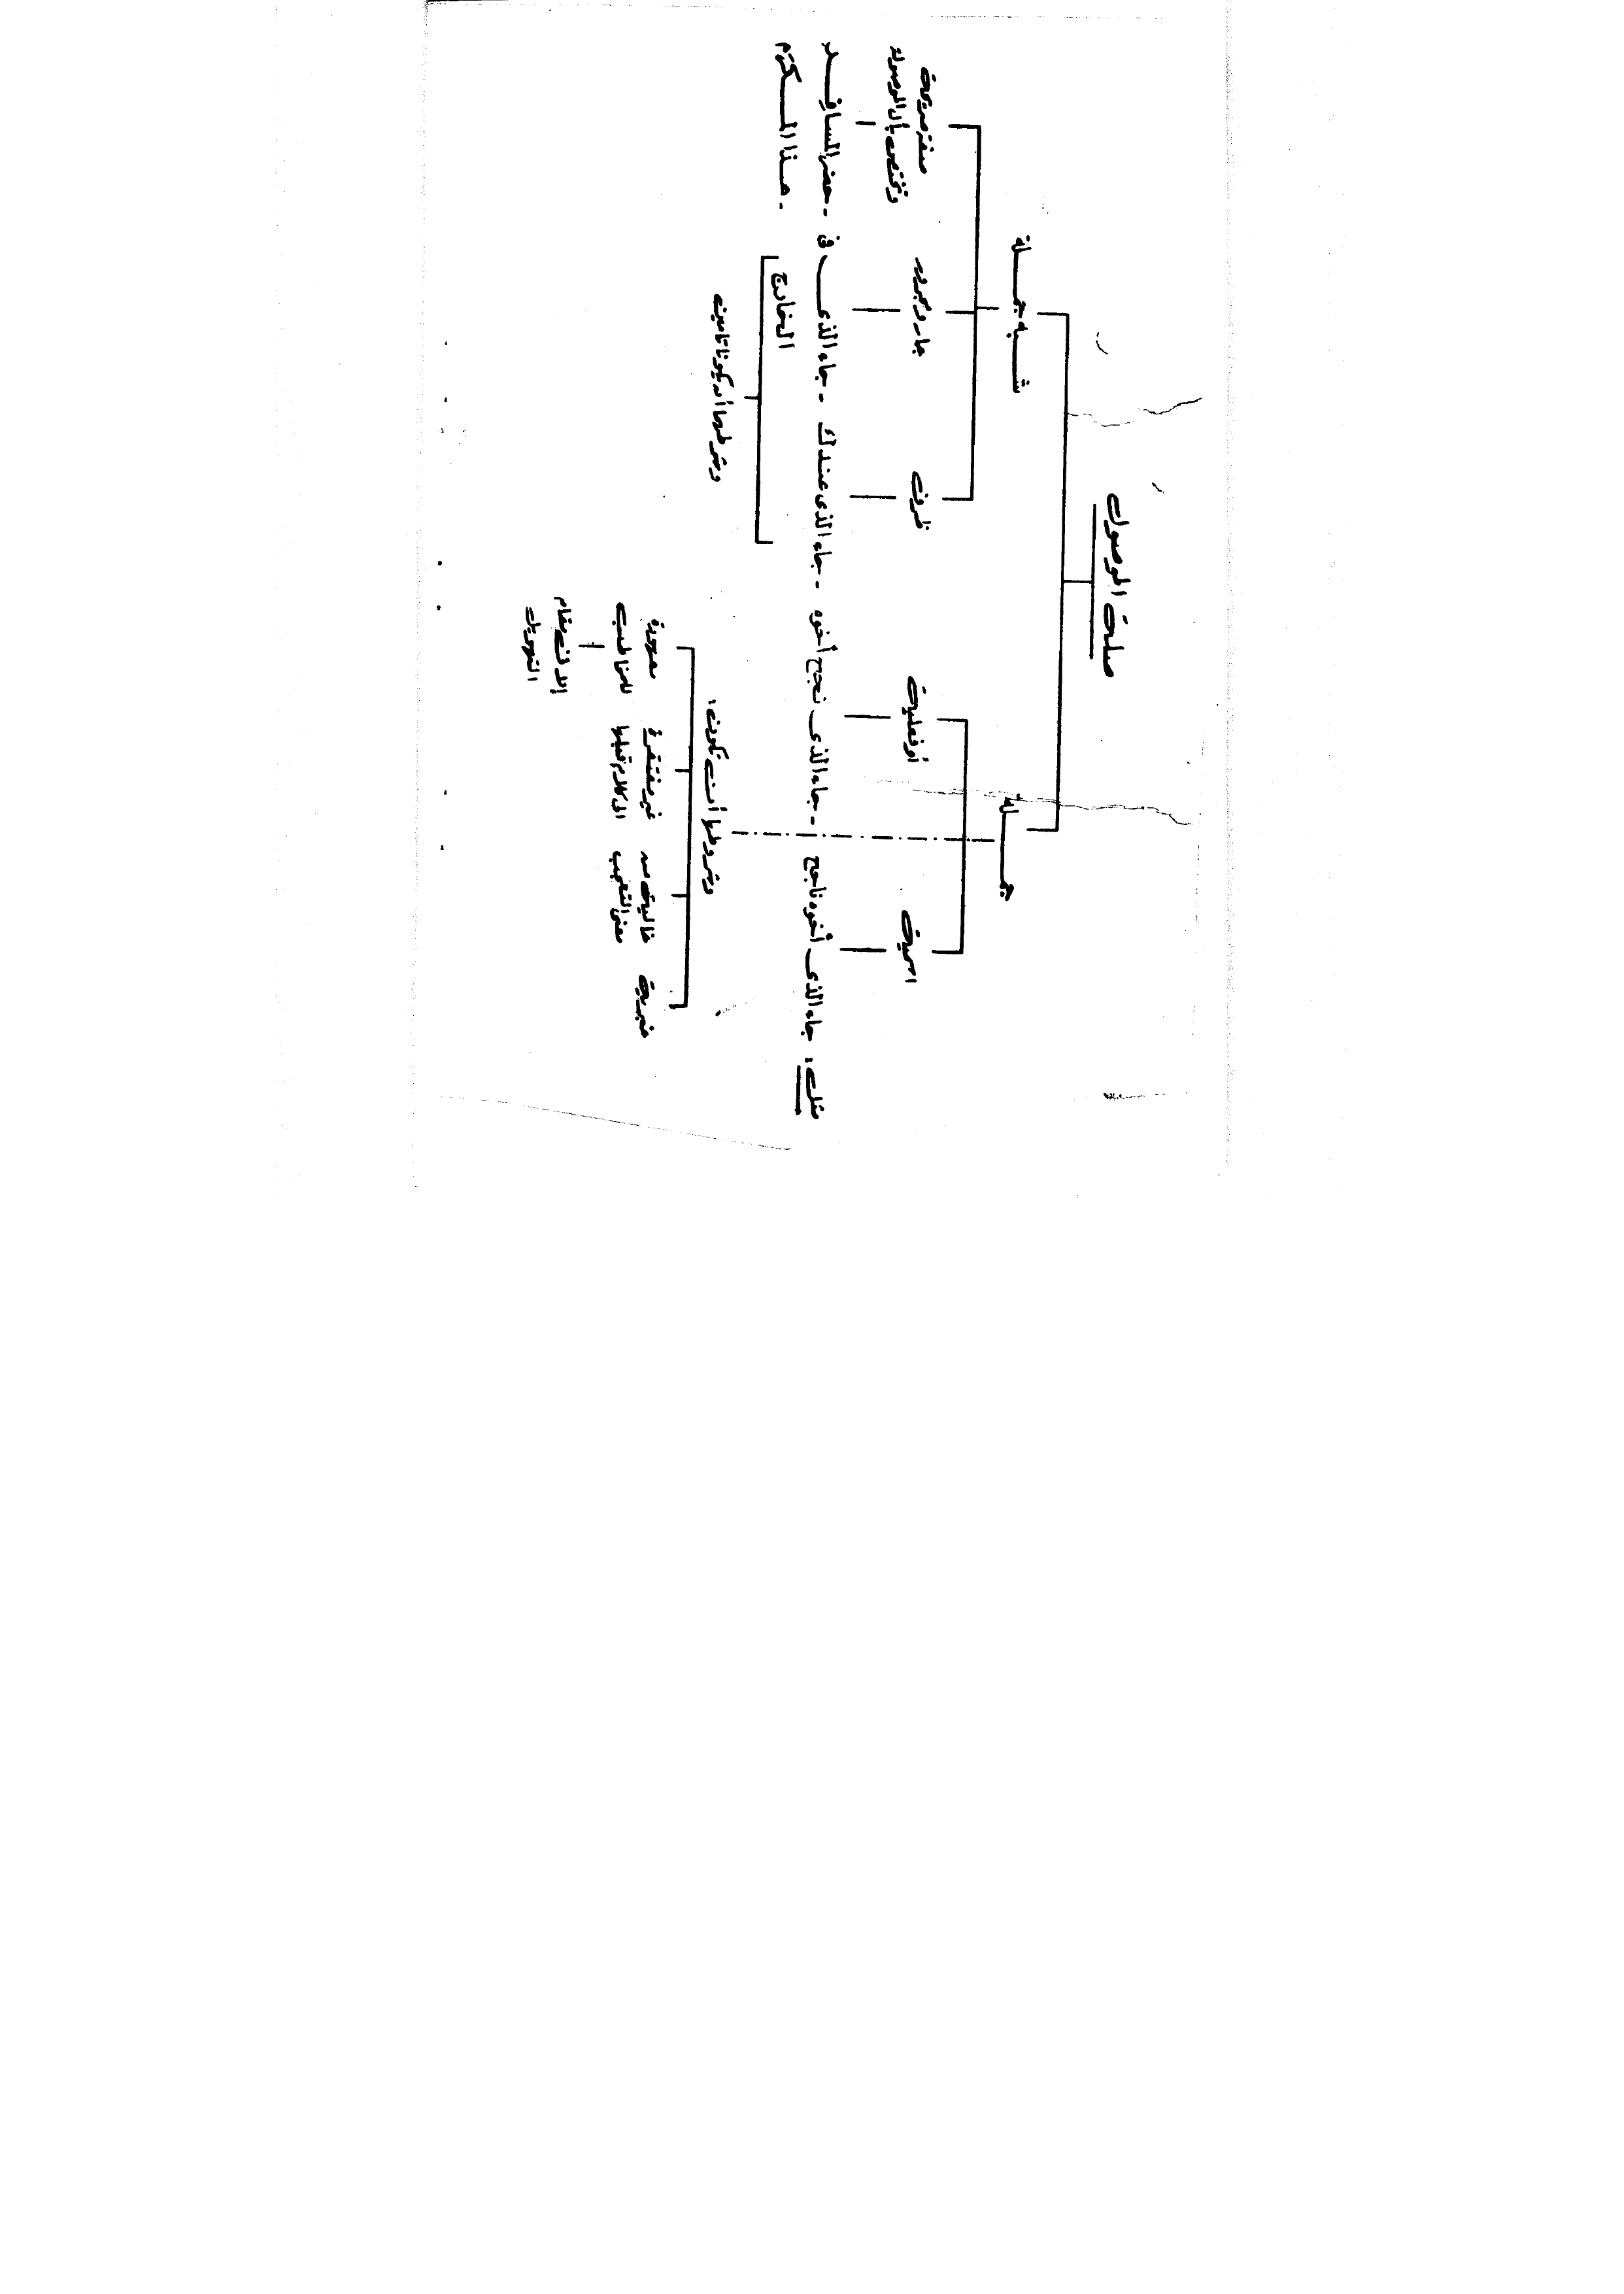 صلة الموصول
جملة
شبه جملة
اسمية
أو فعلية
ظرف
جار ومجرور
صفة صريحة
وتختص بأل الموصولة
مثل: جاء الذى أخوه ناجح - جاء الذى نجح أخوه - جاء الذى عندك - جاء الذى فى - حضر المسافر
الخارج
هذا المكرم -
وشرطهما أن يكونا تامين
وشروطها أن تكون:
خبرية
خالية من
معنى التعجب
غير مفتقرة
إلى كلام قبلها
معهودة
للمخاطب
إلا فى مقام
التهويل